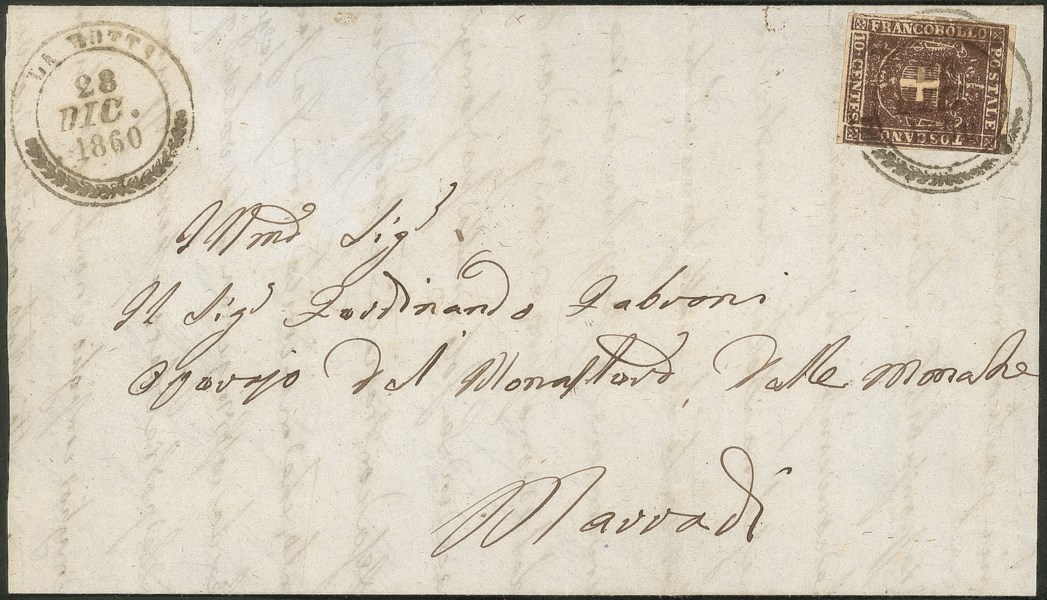 LA ROTTA
28
DIC.
1860
FRANCOBOLLO
POSTALE
TOSCANO
10 CENTES:
Illmo Sigr
Il Sigr Ferdinando Fabroni
Operajo del Monastero, delle Monache
Marradi